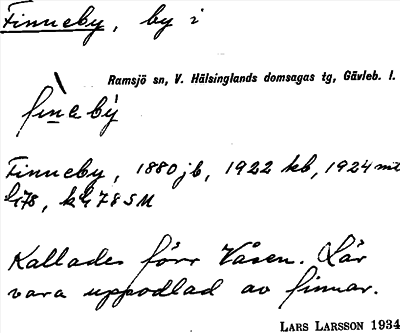 Finneby, by i
Ramsjö sn, V. Hälsinglands domsagas tg, Gävleb. l.
fìnebý
Finneby, 1880 jb, 1922 kb, 1924 mt
h 78, k 478 SM
Kallades förr Våsen. Lär
vara uppodlad av finnar.
LARS LARSSON 1934